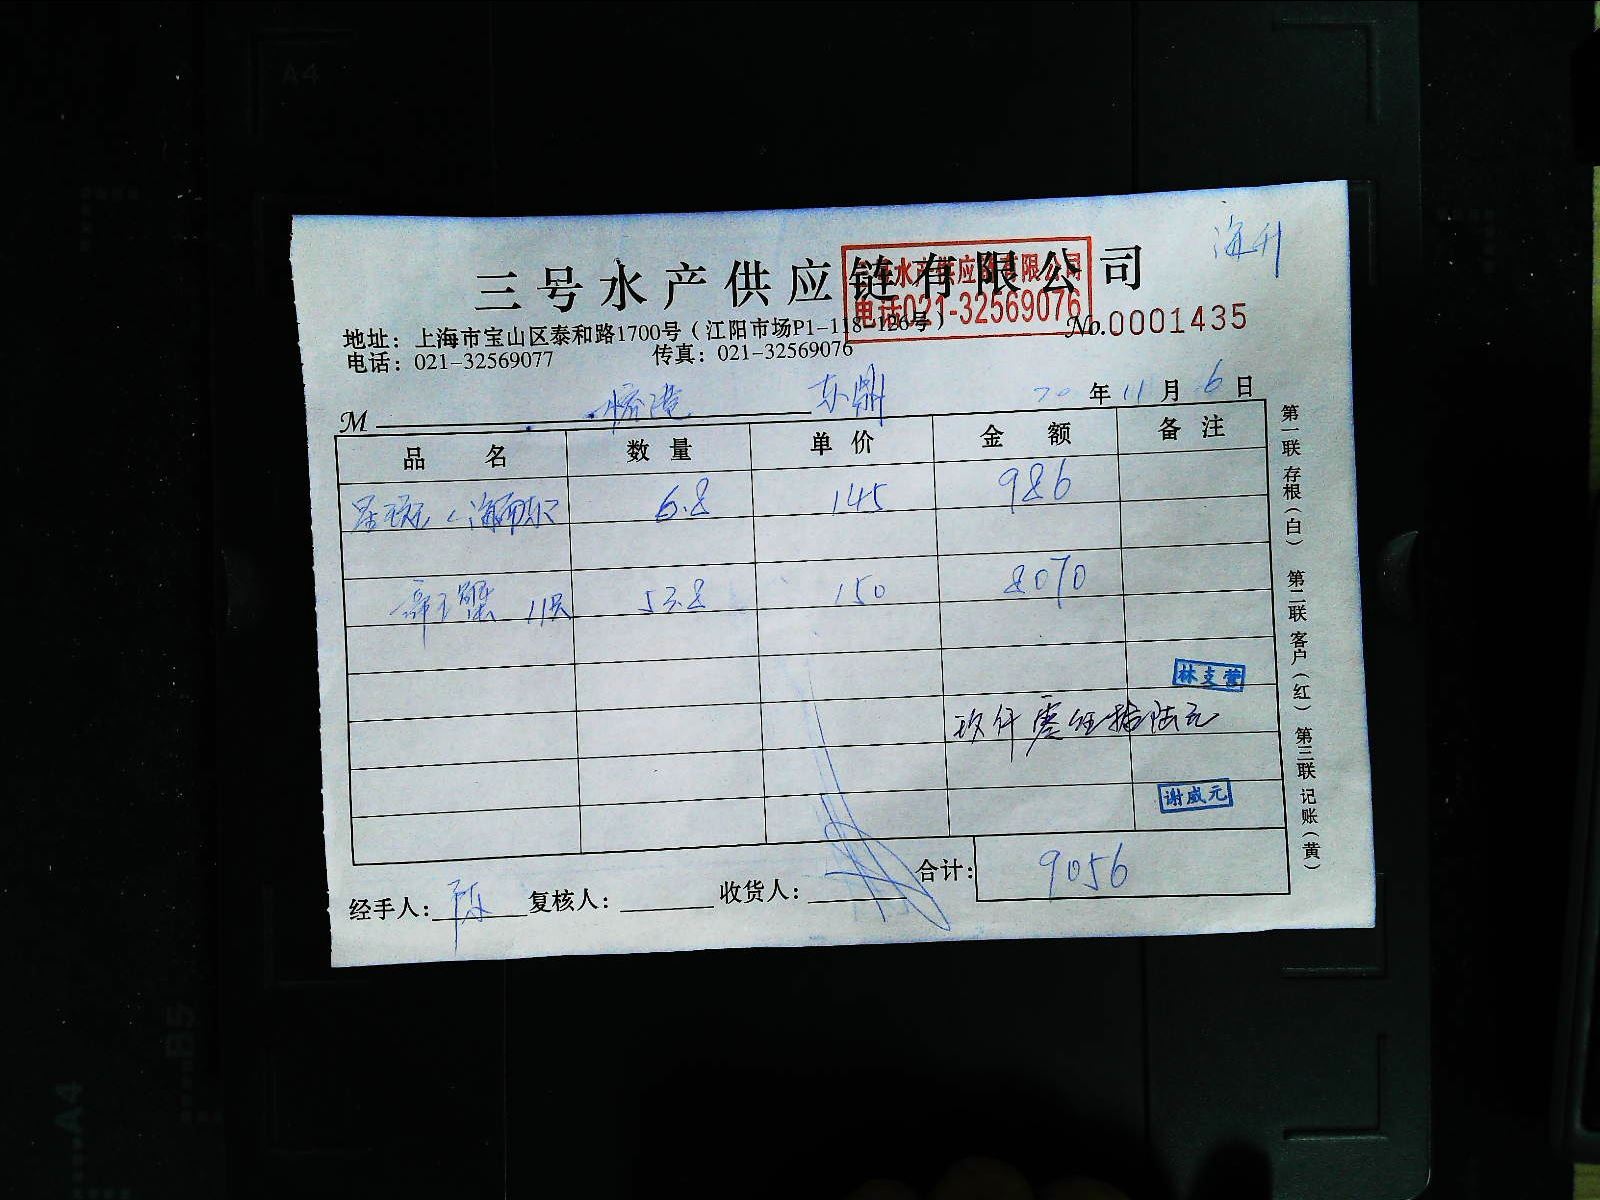 海升
三号水产供应链有限公司
水产供应有限公司
电话021-32569076
地址：上海市宝山区泰和路1700号（江阳市场P1-118-126号）
No.0001435
电话：021-32569077 传真：021-32569076
M 东鼎 20年11月6日
品名 数量 单价 金额 备注
6.8 145 986
帝王蟹 11只 53.8 150 8070
林支营
玖仟零伍拾陆元
谢威元
合计：9056
经手人：陈 复核人： 收货人：
第一联 存根（白） 第二联 客户（红） 第三联 记账（黄）
A4
B5
A4